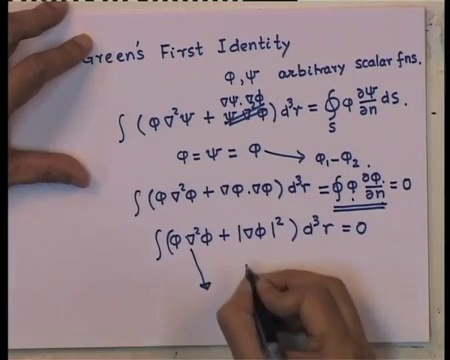 Green's First Identity
φ, ψ arbitrary scalar fns.
∇ψ·∇φ
∫ (φ∇²ψ + ) d³r = ∮_S φ ∂ψ/∂n ds.
φ = ψ = φ → φ₁-φ₂.
∫ (φ∇²φ + ∇φ·∇φ) d³r = ∮ φ ∂φ/∂n = 0
∫ (φ∇²φ + |∇φ|²) d³r = 0